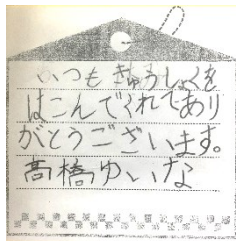 いつもきゅうしょくを
はこんでくれてあり
がとうございます。
高橋ゆいな